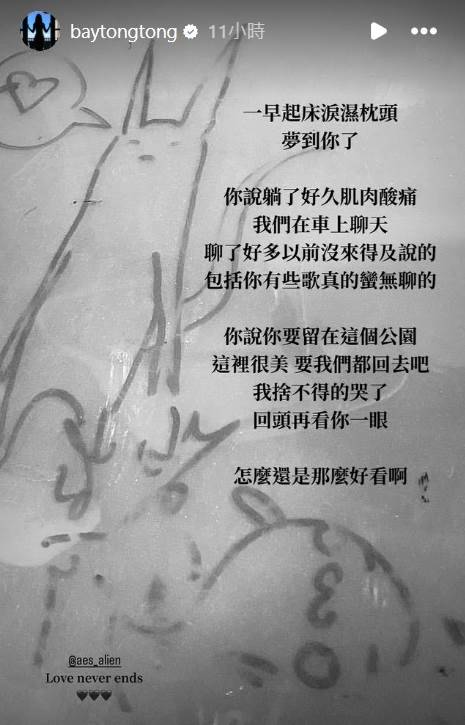 baytongtong 11小時
一早起床淚濕枕頭
夢到你了
你說躺了好久肌肉酸痛
我們在車上聊天
聊了好多以前沒來得及說的
包括你有些歌真的蠻無聊的
你說你要留在這個公園
這裡很美 要我們都回去吧
我捨不得的哭了
回頭再看你一眼
怎麼還是那麼好看啊
@aes_alien
Love never ends